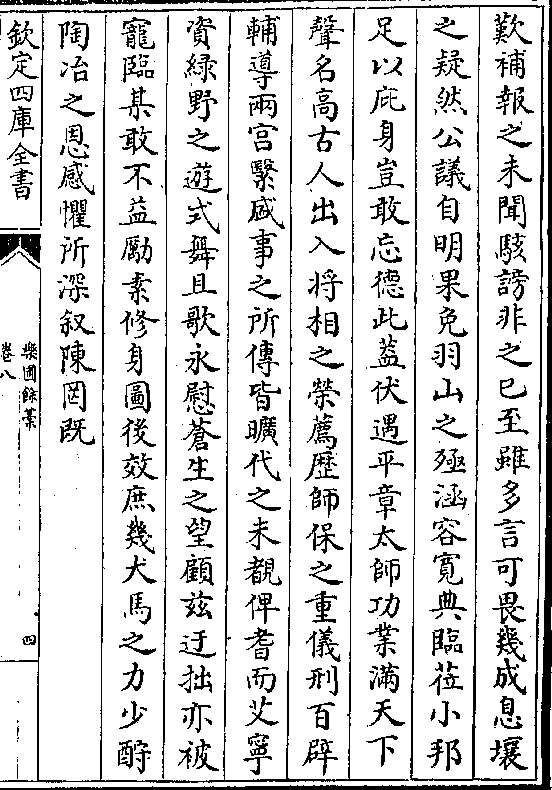 歎補報之未聞駭謗非之已至雖多言可畏幾成息壤
之疑然公議自明果免羽山之殛涵容寛典臨莅小邦
足以庇身豈敢忘德此蓋伏遇平章太師功業滿天下
聲名高古人出入將相之榮薦歷師保之重儀刑百辟
輔導兩宫繄盛事之所傳皆曠代之未覩俾耆而艾寧
資緑野之遊式舞且歌永慰蒼生之望顧兹迂拙亦被
寵臨某敢不益勵素修身圖後效庶幾犬馬之力少酧
陶冶之恩感懼所深叙陳罔既
欽定四庫全書
樂圃餘藁
卷八
四